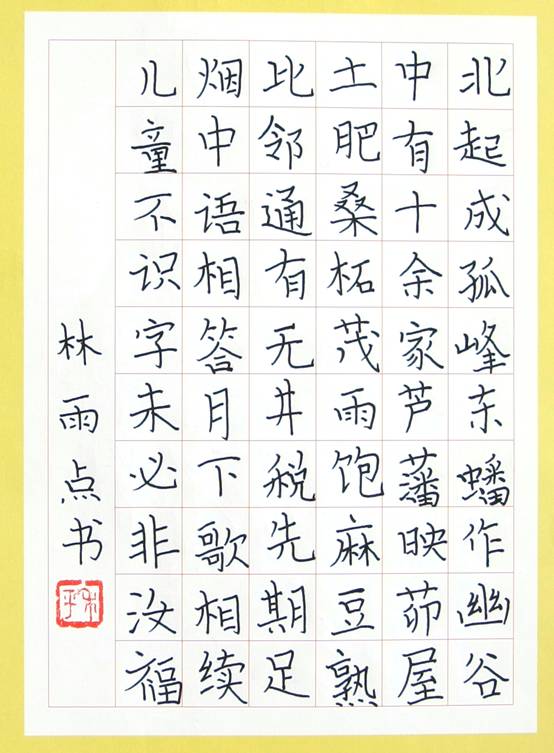 北起成孤峰东蟠作幽谷
中有十余家芦藩映茆屋
土肥桑柘茂雨饱麻豆熟
比邻通有无井税先期足
烟中语相答月下歌相续
儿童不识字未必非汝福
林雨点书